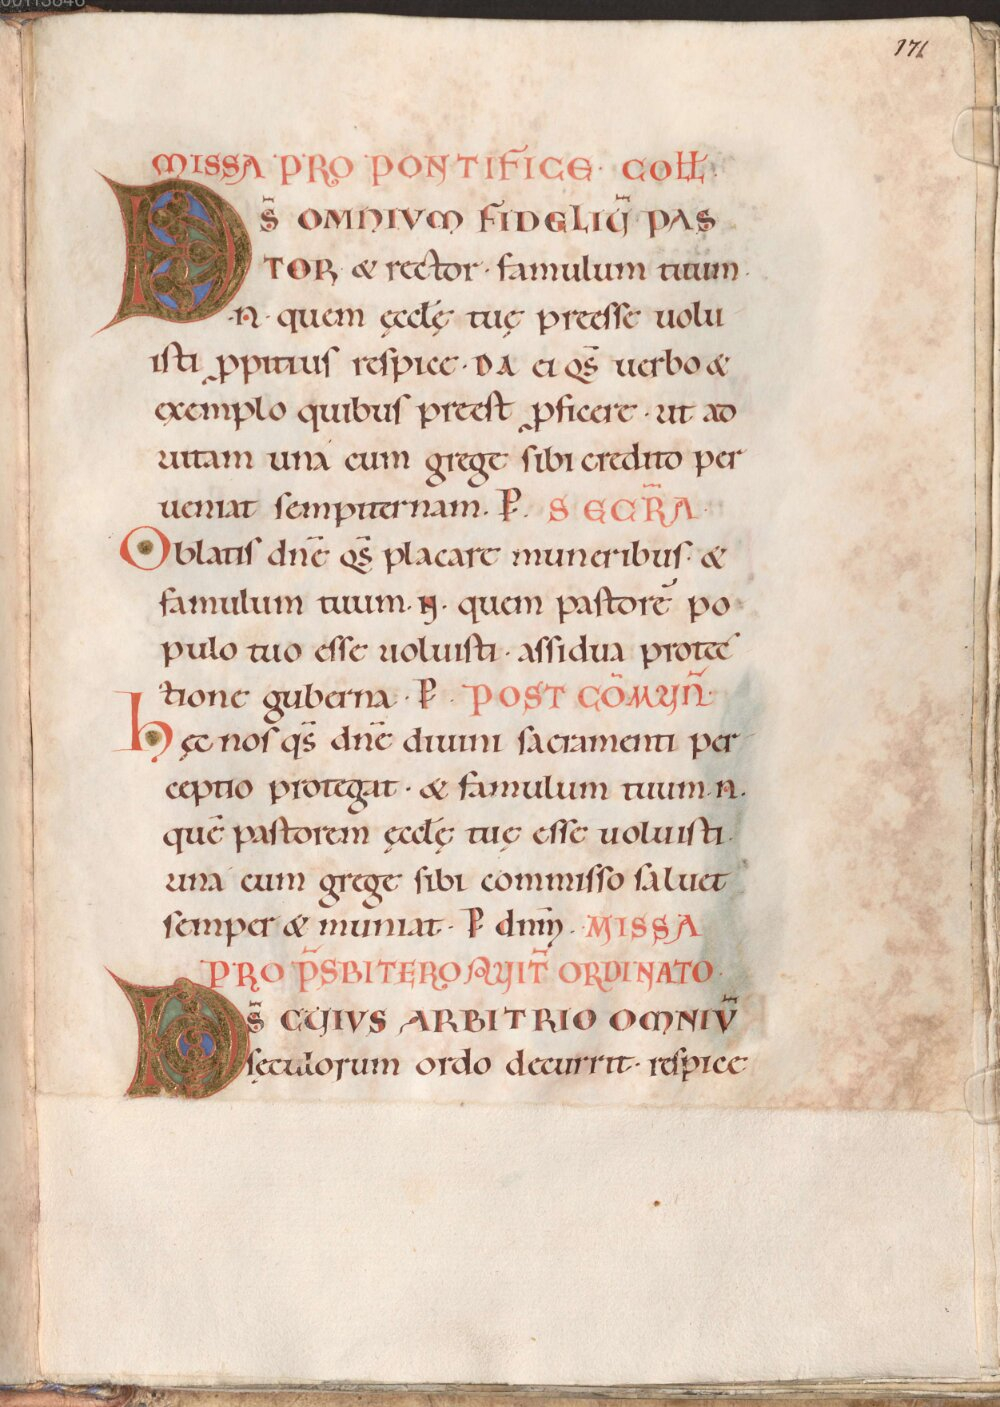 171
MISSA PRO PONTIFICE· COLL·
DS̄ OMNIUM FIDELIŪ PAS
TOR & rector· famulum tuum·
·N· quem ęccłę tuę preesse uolu
isti ꝓpitius respice· DA ei qs̄ uerbo &
exemplo quibus preest ꝓficere· ut ad
uitam una cum grege sibi credito per
ueniat sempiternam. P̱. SECR̄A·
Oblatis dnē qs̄ placare muneribus· &
famulum tuum·N· quem pastorē po
pulo tuo esse uoluisti· assidua protec
tione guberna· P̱· POST COM̄UN̄·
hęc nos qs̄ dnē diuini sacramenti per
ceptio protegat· & famulum tuum·N·
quē pastorem ęccłę tuę esse uoluisti·
una cum grege sibi commisso saluet
semper & muniat· P̱ dnm̄· MISSA
PRO P̄SBITERO AUIT̄ ORDINATO·
DS̄ CUIUS ARBITRIO OMNIŪ
sęculorum ordo decurrit· respice